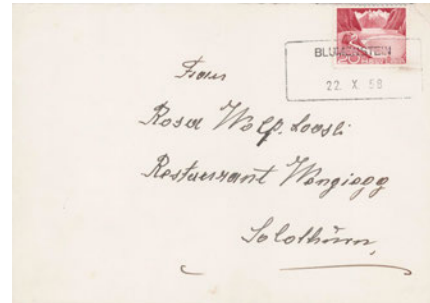 BLUMENSTEIN
22. X.
Frau
Rosa Wolf-Loosli
Restaurant
Solothurn